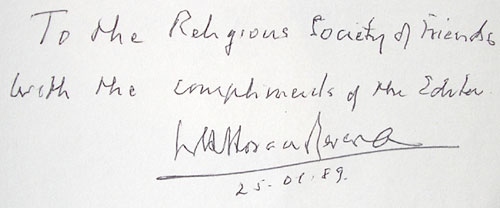 To the Religious Society of Friends
with the compliments of the Editor.
25-01-89.